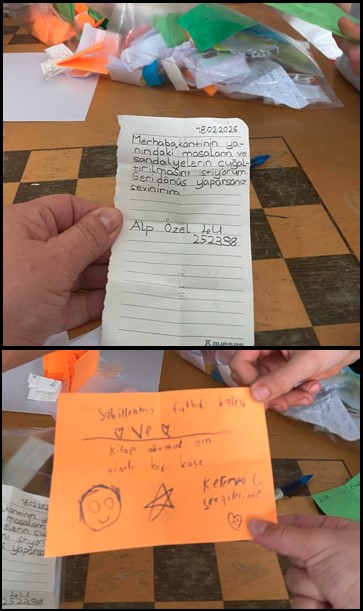 18.02.2026
Merhaba,kantinin ya-
nındaki masaların ve
sandalyelerin çoğal-
tırılmasını istiyorum.
Geri dönüş yaparsanız
sevinirim.
Alp Özel 4U
252398
Sabitlenmiş futbol kalesi
ve
Kitap okumak için
bir köşe
18.02.2026